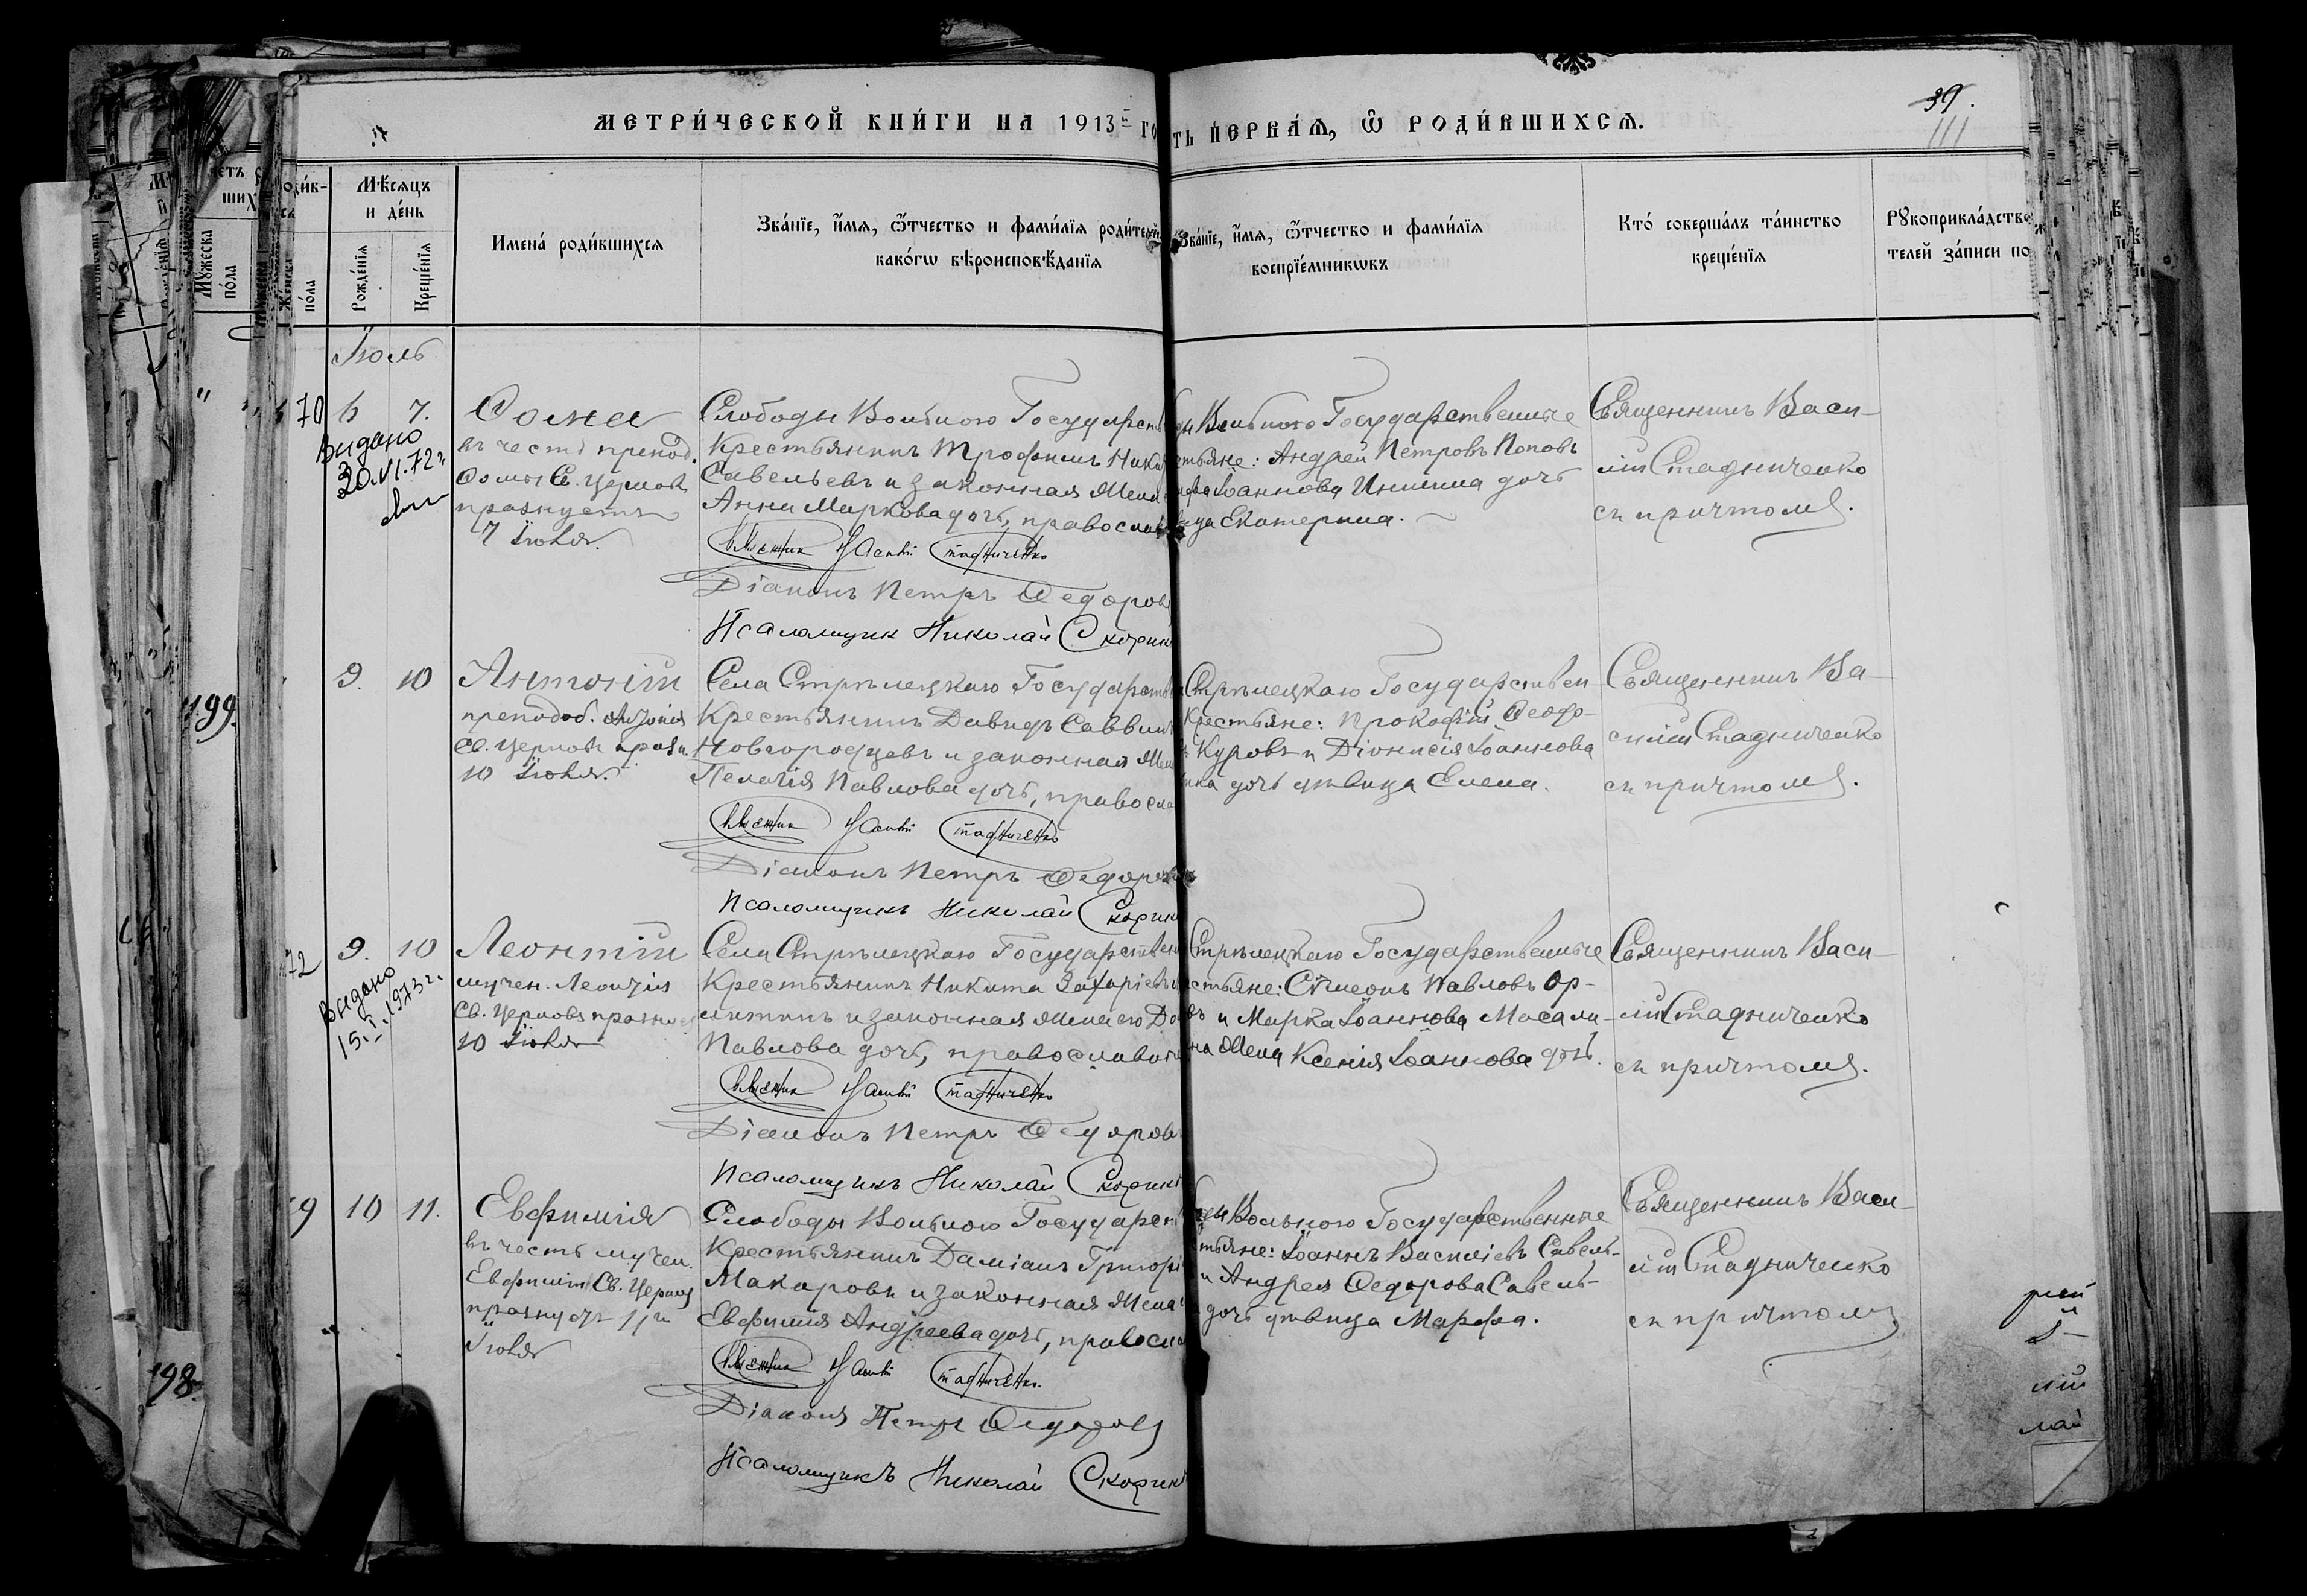 МЕТРИ́ЧЕСКОЙ КНИ́ГИ НА 1913 ГО
ТЬ ПЕРВАѦ, Ѽ РОДИ́ВШИХСѦ.
39.
111
Мѣ́сѧцъ
и де́нь
Рожде́нїѧ
Креще́нїѧ
Мꙋжеска
по́ла
Же́нска
по́ла
Имена́ роди́вшихсѧ
Зва́нїе, и́мѧ, ѻ́тчество и фами́лїѧ роди́телей
како́гѡ вѣроисповѣ́данїѧ
Зва́нїе, и́мѧ, ѻ́тчество и фами́лїѧ
воспрїе́мникѡвъ
Кто́ соверша́лъ та́инство
креще́нїѧ
Рꙋкоприкла́дство
телей за́писи по
Іюль
70 6 7.
Видано
30.VI.72г.
Ѳома
въ честь препод.
Ѳомы Св. Церковь
празнуетъ
7 Іюля.
Слободы Вольного Государств
Крестьянинъ Трофимъ Ники
Савельевъ и законная жена
Анна Маркова дочь, православ
Священник Василій Стадниченко
Діаконъ Петръ Ѳедоровъ
Псаломщик Николай Скорик
ды Вольного Государственные
стьяне: Андрей Петровъ Поповъ
Іоаннова Инишина дочь
ица Екатерина.
Священникъ Васи-
лій Стадниченко
съ причтомъ.
199.
9. 10
Антоній
преподоб. Антонія
Св. Церковь празн.
10 Іюля.
Села Стрѣлецкаго Государств
Крестьянинъ Давидъ Саввинъ
Новгородцевъ и законная жен
Пелагія Павлова дочь, правосла
Священник Василій Стадниченко
Діаконъ Петръ Ѳедоровъ
Псаломщикъ Николай Скорик
Стрѣлецкаго Государствен
Крестьяне: Прокофій Ѳеофо-
Куровъ и Діонисія Іоаннова
ина дочь дѣвица Елена.
Священникъ Ва-
силій Стадниченко
съ причтомъ.
72 9. 10
Видано
15.I.1973г.
Леонтій
мучен. Леонтія
Св. Церковь празнуе
10 Іюля
Села Стрѣлецкаго Государствен
Крестьянинъ Никита Захаріевъ
и законная жена его До
Павлова дочь, православн
Священник Василій Стадниченко
Діаконъ Петръ Ѳедоровъ
Псаломщикъ Николай Скорик
Стрѣлецкаго Государственные
стьяне: Сѵмеонъ Павловъ Ор-
въ и Марка Іоаннова Масали-
на жена Ксенія Іоаннова дочь.
Священникъ Васи-
лій Стадниченко
съ причтомъ.
9 10 11.
Евфимія
въ честь мучен.
Евфиміи Св. Церковь
празнуетъ 11го
Іюля
198.
Слободы Вольного Государств
Крестьянинъ Даміанъ Григорі
Макаровъ и законная жена
Евфимія Андреева дочь, правосла
Священник Василій Стадниченко
Діаконъ Петръ Ѳедоровъ
Псаломщикъ Николай Скорик
ды Вольного Государственные
стьяне: Іоаннъ Василіевъ Савель-
и Андрея Ѳедорова Савель-
дочь дѣвица Марфа.
Священникъ Васи-
лій Стадниченко
съ причтомъ
лій
лай